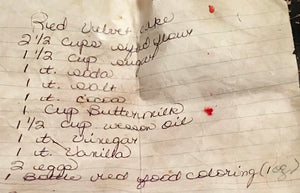 Red Velvet Cake
2 1/2 cups sifted flour
1 1/2 cup sugar
1 t. soda
1 t. salt
1 t. cocoa
1 cup Buttermilk
1 1/2 cup wesson oil
1 t. Vinegar
1 t. Vanilla
2 eggs
1 Bottle red food coloring (1 oz.)